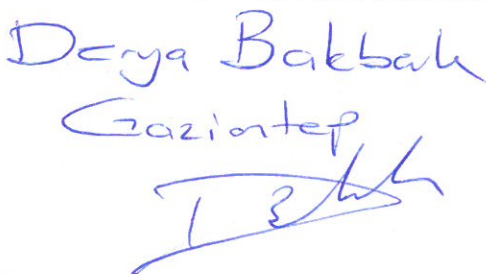 Derya Bakbak
Gaziantep